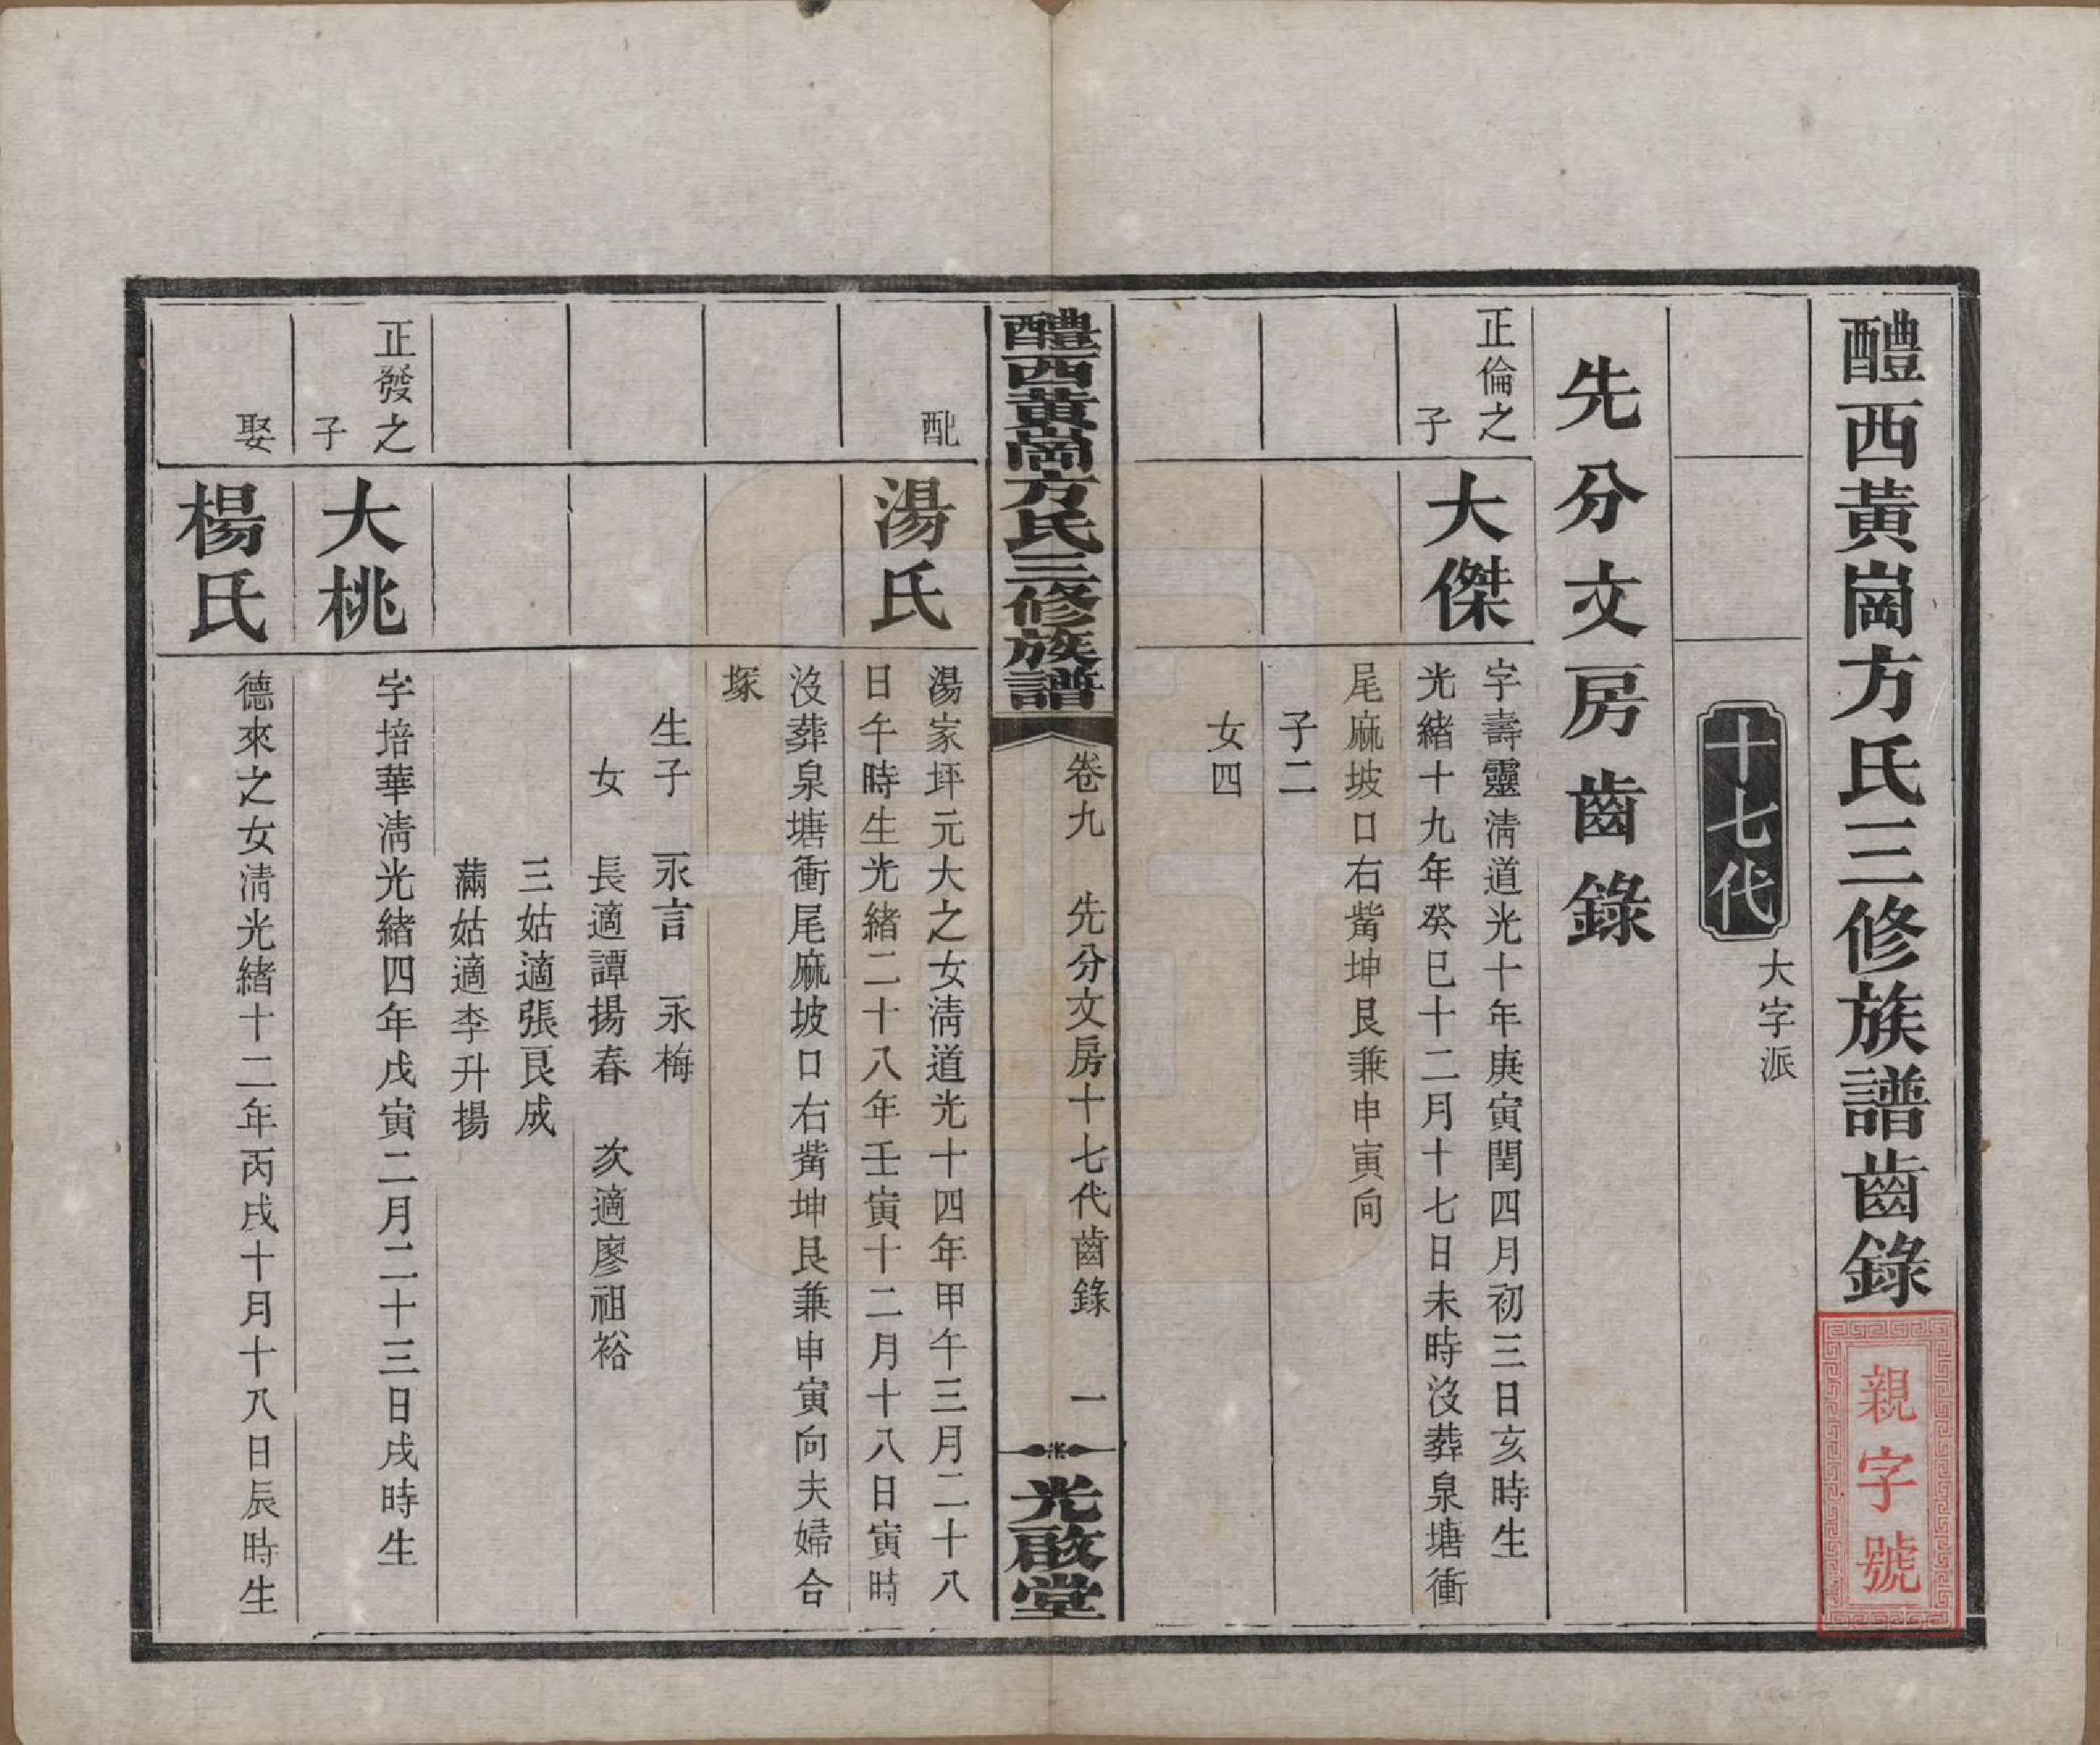 醴西黃崗方氏三修族譜齒錄
親字號
十七代
大字派
先分文房齒錄
正倫之
子
大傑
字壽靈淸道光十年庚寅閏四月初三日亥時生
光緒十九年癸巳十二月十七日未時沒葬泉塘衝
尾麻坡口右觜坤艮兼申寅向
子二
女四
醴西黃崗方氏三修族譜
卷九　先分文房十七代齒錄　一
光啟堂
配
湯氏
湯家坪元大之女淸道光十四年甲午三月二十八
日午時生光緒二十八年壬寅十二月十八日寅時
沒葬泉塘衝尾麻坡口右觜坤艮兼申寅向夫婦合
塚
生子　永言　永梅
女　長適譚揚春　次適廖祖裕
三姑適張艮成
滿姑適李升揚
正發之
子
大桃
字培華淸光緒四年戊寅二月二十三日戌時生
娶
楊氏
德來之女淸光緒十二年丙戌十月十八日辰時生